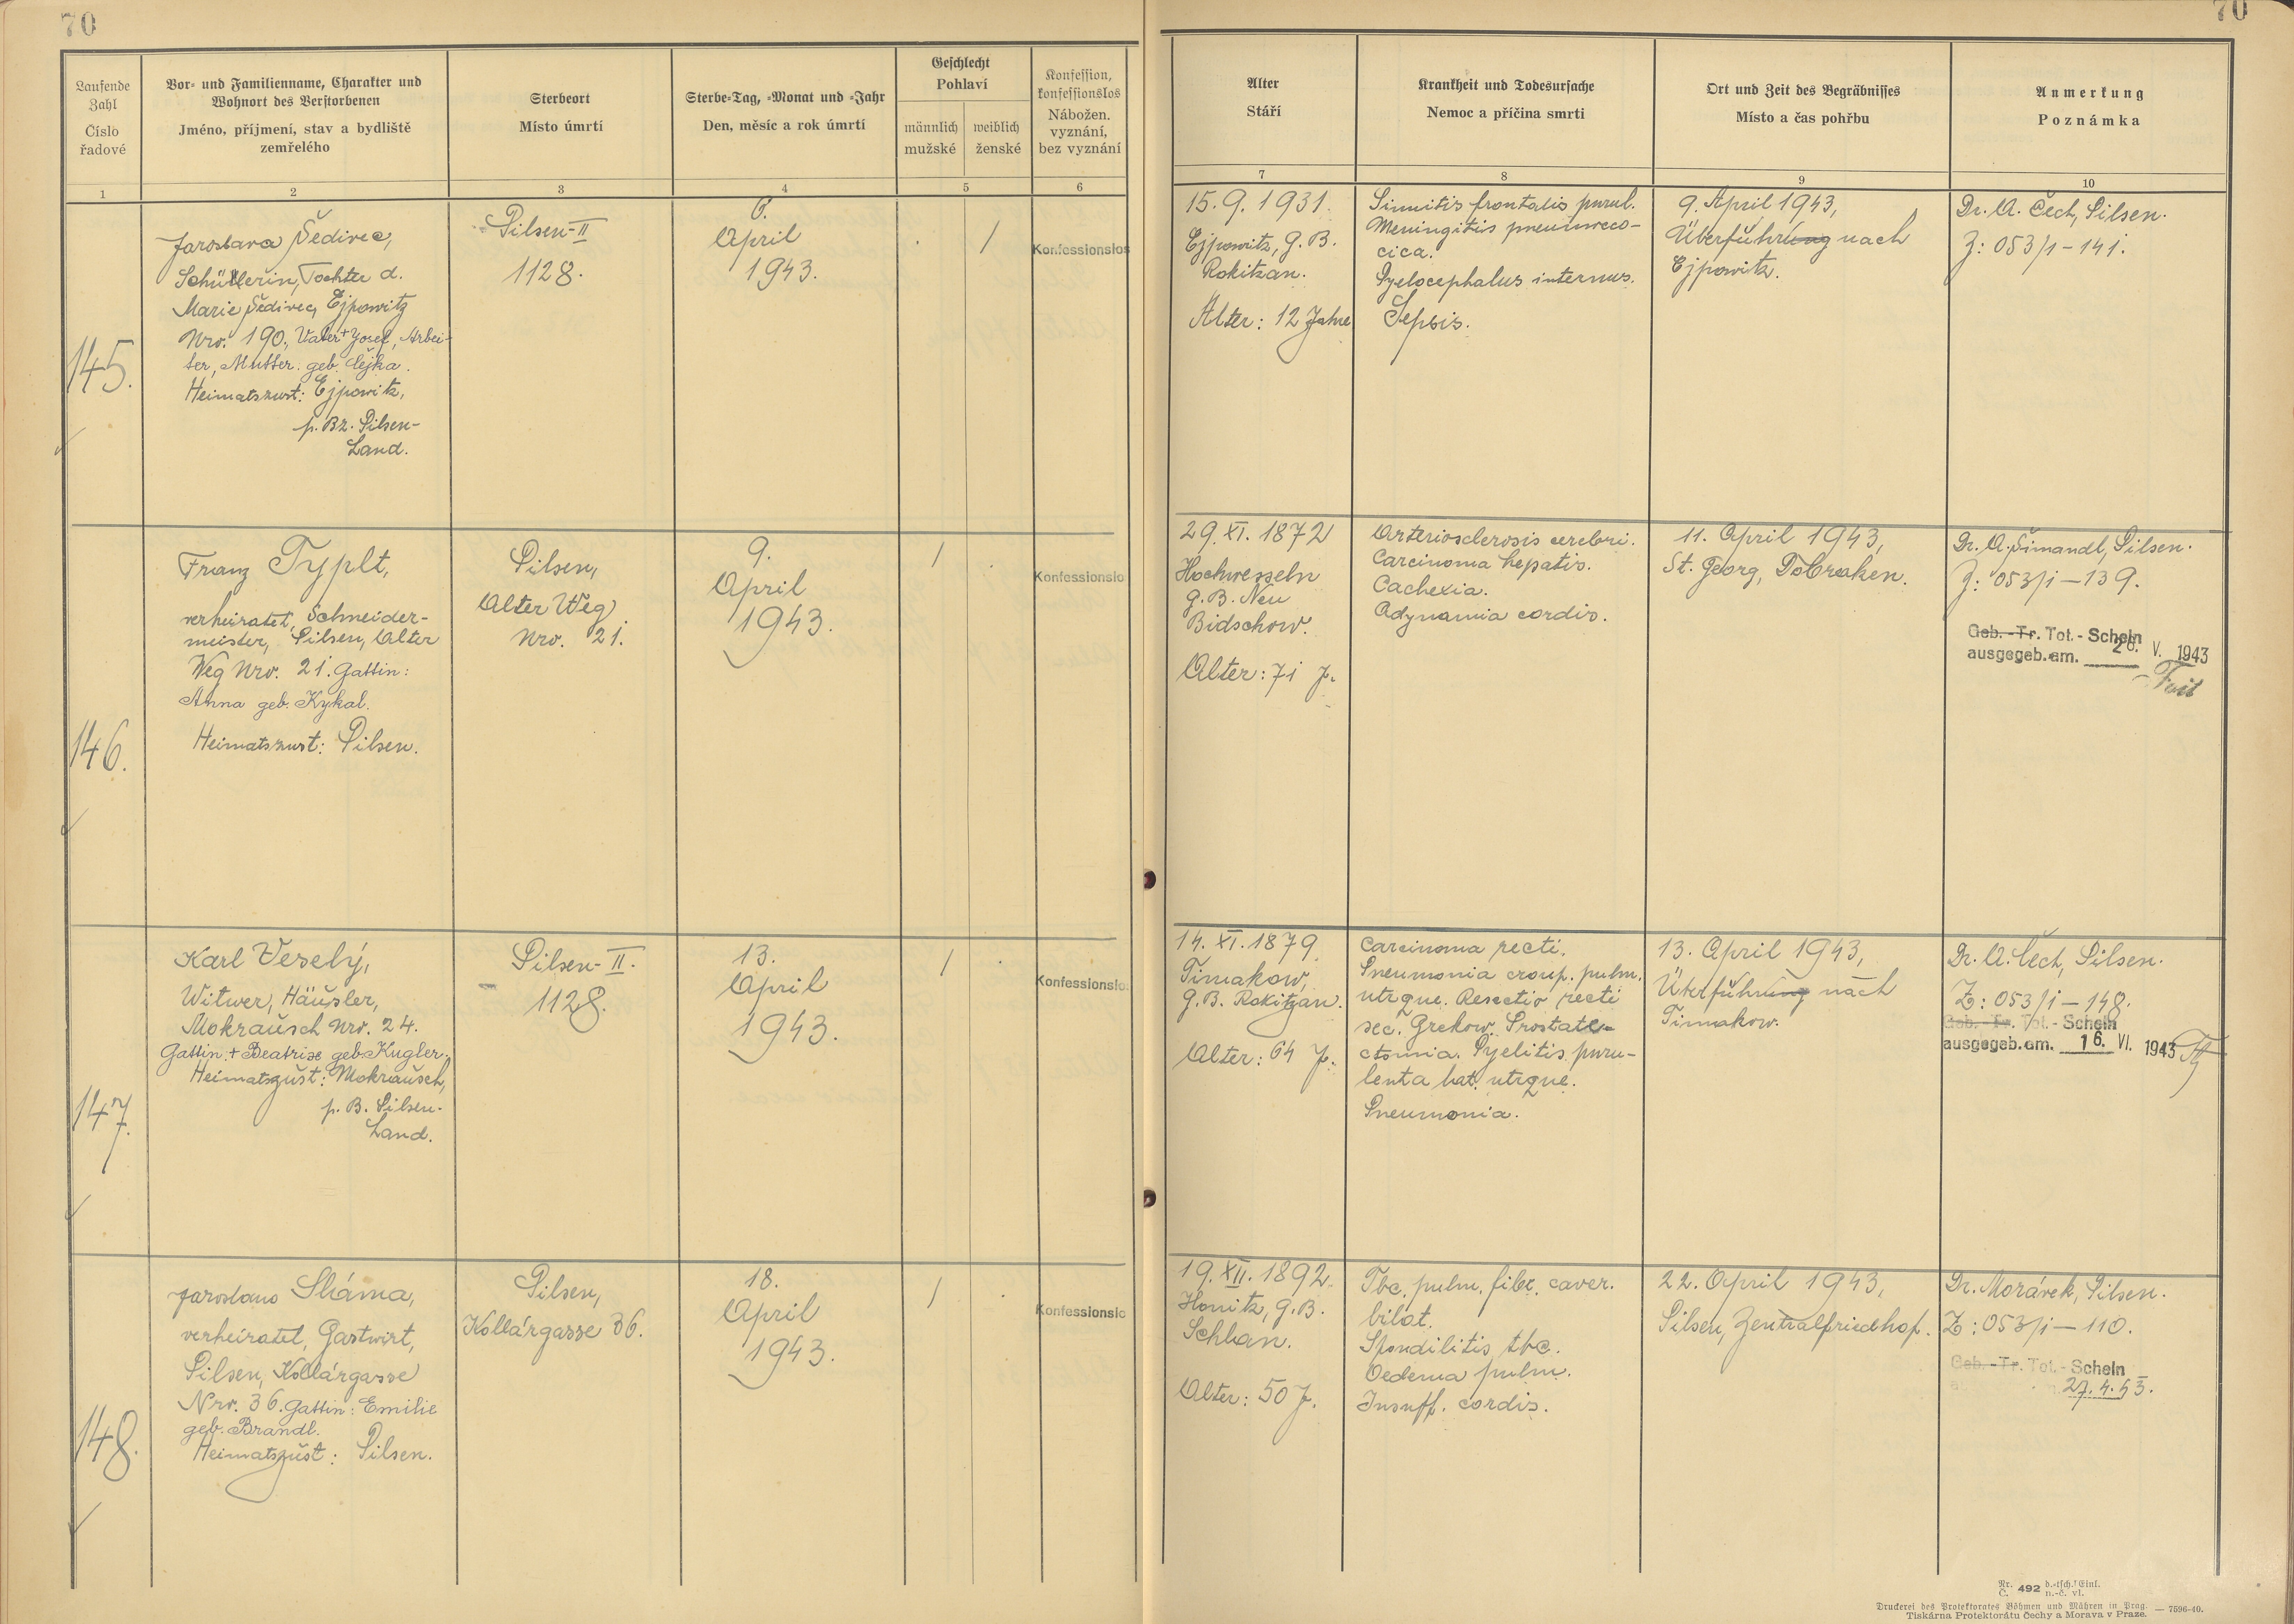 70
70
Laufende Zahl
Číslo řadové
Vor- und Familienname, Charakter und
Wohnort des Verstorbenen
Jméno, příjmení, stav a bydliště
zemřelého
Sterbeort
Místo úmrtí
Sterbe-Tag, -Monat und -Jahr
Den, měsíc a rok úmrtí
Geschlecht
Pohlaví
männlich
mužské
weiblich
ženské
Konfession,
konfessionslos
Nábožen.
vyznání,
bez vyznání
Alter
Stáří
Krankheit und Todesursache
Nemoc a příčina smrti
Ort und Zeit des Begräbnisses
Místo a čas pohřbu
Anmerkung
Poznámka
1
2
3
4
5
6
7
8
9
10
145.
Jaroslava Šedivec,
Schülerin, Tochter d.
Marie Šedivec, Ejpowitz
Nro. 190., Vater + Josef, Arbei-
ter, Mutter. geb. Cejka.
Heimatszust: Ejpowitz,
p. Bz. Pilsen-
Land.
Pilsen-II
1128.
6.
April
1943.
/
Konfessionslos
15. 9. 1931.
Ejpowitz, G. B.
Rokitzan.
Alter: 12 Jahre
Sinuitis frontalis purul.
Meningitis pneumoco-
cica.
Pyelocephalus internus.
Sepsis.
9. April 1943,
Überführung nach
Ejpowitz.
Dr. A. Čech, Pilsen.
Z: 053/1-141.
146.
Franz Typlt,
verheiratet, Schneider-
meister, Pilsen, Alter
Weg Nro. 21. Gattin:
Anna geb. Kykal.
Heimatszust: Pilsen.
Pilsen,
Alter Weg
Nro. 21.
9.
April
1943.
/ .
Konfessionslo
29. XI. 1872
Hochwesseln
G. B. Neu
Bidschow.
Alter: 71 J.
Arteriosclerosis cerebri.
Carcinoma hepatis.
Cachexia.
Adynamia cordis.
11. April 1943,
St. Georg, Dobraken.
Dr. A. Šimandl, Pilsen.
Z: 053/1-139.
Geb.-Tr. Tot.-Schein
ausgegeb. am. 28. V. 1943
147.
Karl Veselý,
Witwer, Häusler,
Mokrausch Nro. 24.
Gattin + Beatrise geb. Kugler.
Heimatszust: Mokrausch,
p. B. Pilsen-
Land.
Pilsen-II.
1128.
13.
April
1943.
/ .
Konfessionslo
14. XI. 1879.
Timakow,
G. B. Rokitzan.
Alter: 64 J.
Carcinoma recti.
Pneumonia croup. pulm.
utrque. Resectio recti
sec. Grekow. Prostate-
ctomia. Pyelitis puru-
lenta lat. utrque.
Pneumonia.
13. April 1943,
Überführung nach
Timakow.
Dr. A. Čech, Pilsen.
Z: 053/1-148.
Geb.-Tr. Tot.-Schein
ausgegeb. am. 16. VI. 1943
148.
Jaroslaus Sláma,
verheiratet, Gastwirt,
Pilsen, Kollárgasse
Nro. 36. Gattin: Emilie
geb. Brandl.
Heimatszust: Pilsen.
Pilsen,
Kollárgasse 36.
18.
April
1943.
/ .
Konfessionslo
19. XII. 1892.
Honitz, G. B.
Schlan.
Alter: 50 J.
Tbc. pulm. fibr. caver.
bilat.
Spondilitis tbc.
Oedema pulm.
Insuff. cordis.
22. April 1943,
Pilsen, Zentralfriedhof.
Dr. Morávek, Pilsen.
Z: 053/1-110.
Geb.-Tr. Tot.-Schein
27. 4. 43.
Nr. Č. 492 d.-tsch. Einl. n.-č. vl.
Druckerei des Protektorates Böhmen und Mähren in Prag. — 7596-40.
Tiskárna Protektorátu Čechy a Morava v Praze.